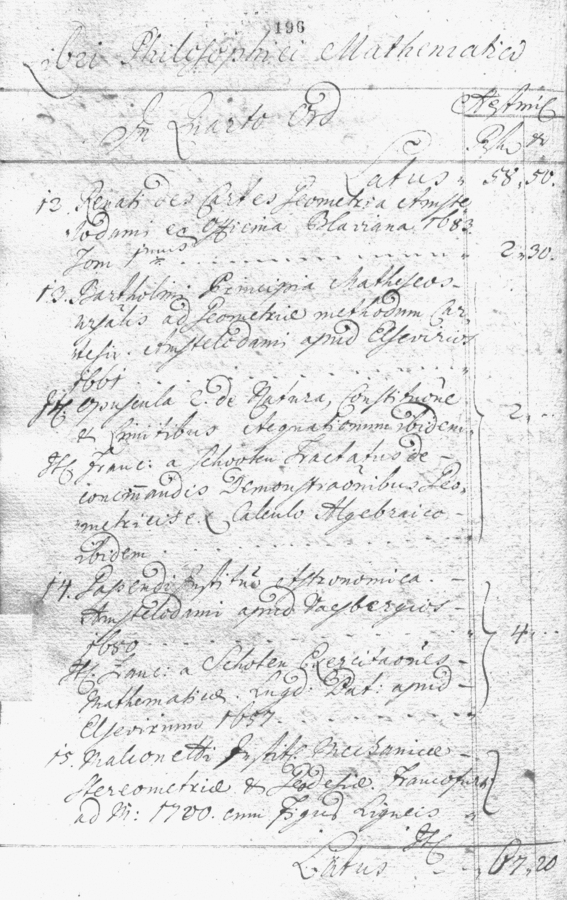 196
Libri Philosophici Mathematici
In Quarto Ord
Aestmic
Rfl. xr
Latus 58, 50.
12. Renati des Cartes Geometria Amste
lodami ex Officina Blaviana 1683
Tom primus 2, 30.
13. Bartholini Principia Matheseos
ursalis ad Geometriae methodum Car
tesii. Amstelodami apud Elsevirios
1661
It Opuscula 2. de Natura, Constitutione 2
& Limitibus Aequationum ibidem
It Franc: a Schooten Tractatus de
concinnandis Demonstraonibus Geo
metricis e Calculo Algebraico
ibidem
14. Gassendi Institutio Astronomica.
Amstelodami apud Jansbergios 4
1680
It Franc: a Schoten Exercitaones
Mathematicae. Lugd: Bat: apud
Elsevirium 1657
15. Malconetti Instit. Mechanicae
Stereometriae & Geodesiae. Francofurti
ad M: 1700. cum Figuris Ligneis
It
Latus 67, 20